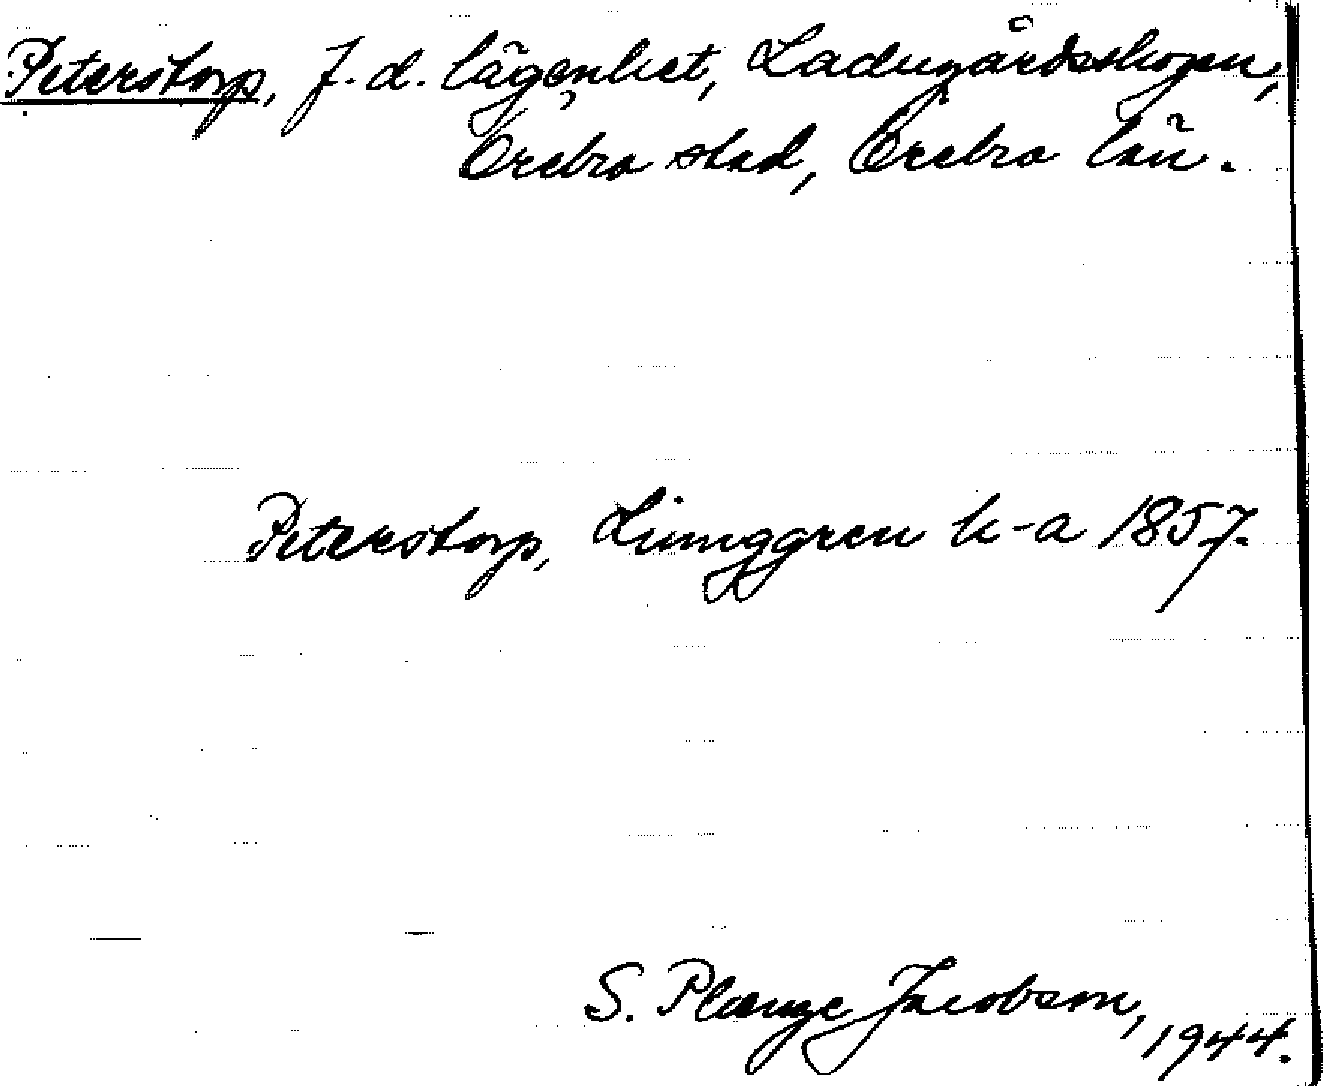 Peterstorp, f. d. lägenhet, Ladugårdsskogen,
Örebro stad, Örebro län.
Peterstorp, Ljunggren k-a 1857.
S. Plange Jacobson, 1944.